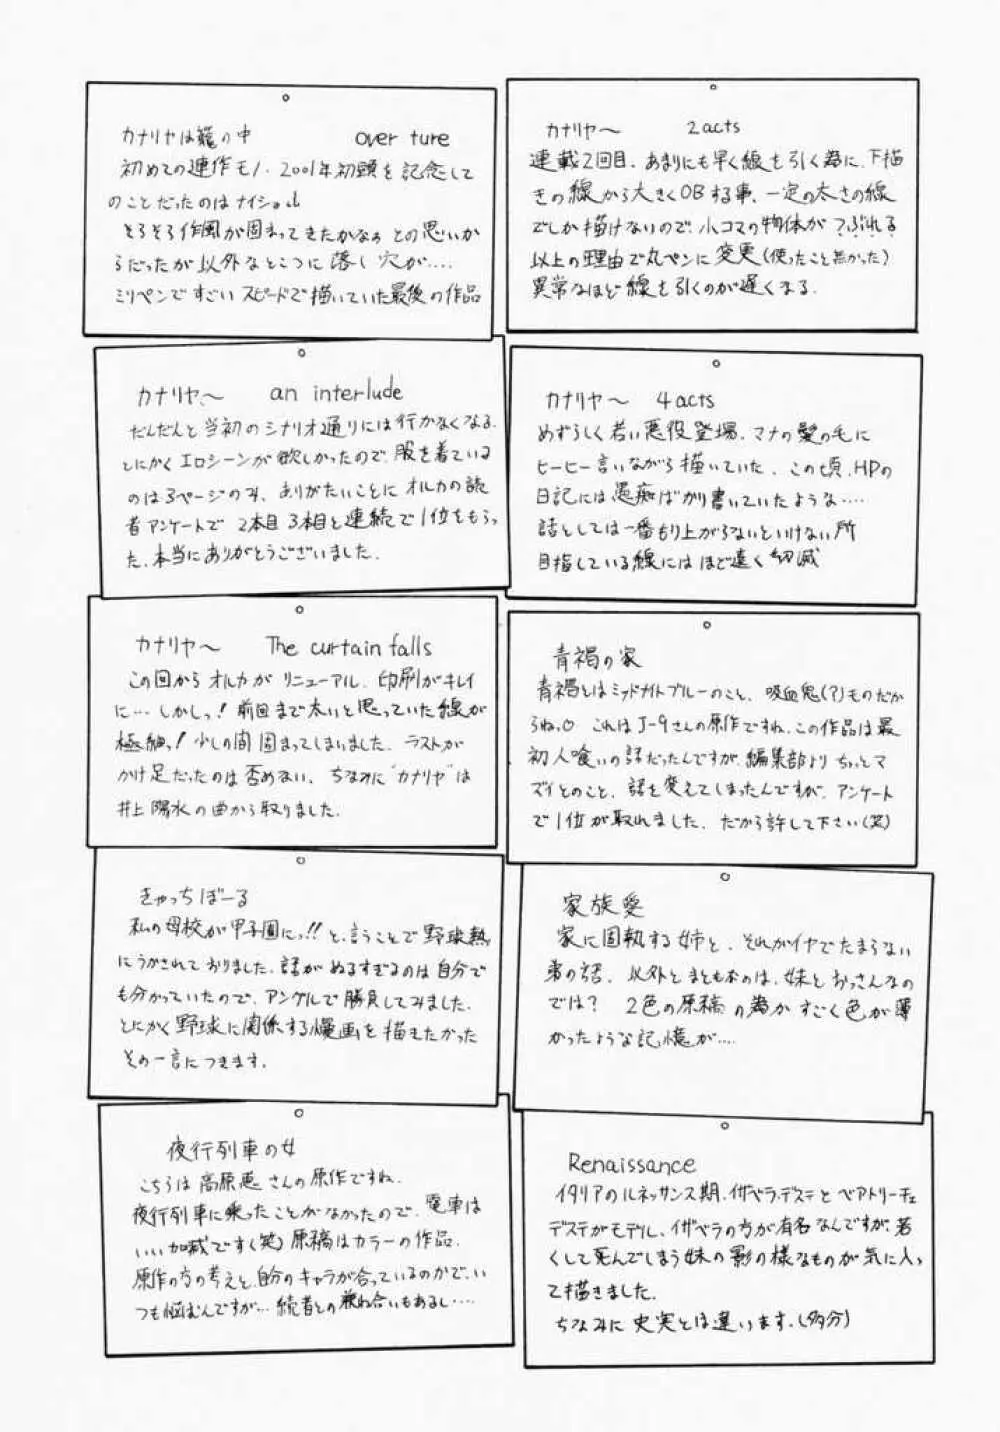 カナリヤは籠の中 over ture
初めての連作モノ. 2001年初頭を記念して
のことだったのはナイショ。
そろそろ作風が固まってきたかなぁとの思いか
らだったが以外なところに落し穴が....
ミリペンですごいスピードで描いていた最後の作品
カナリヤ〜 2acts
連載2回目. あまりにも早く線を引く為に、下描
きの線から大きくOBする事、一定の太さの線
でしか描けないので、小コマの物体がつぶれる
以上の理由で丸ペンに変更(使ったこと無かった)
異常なほど線を引くのが遅くなる.
カナリヤ〜 an interlude
だんだんと当初のシナリオ通りには行かなくなる.
とにかくエロシーンが欲しかったので、服を着ている
のは3ページのみ、ありがたいことにオルカの読
者アンケートで 2本目3本目と連続で1位をもらっ
た.本当にありがとうございました.
カナリヤ〜 4acts
めずらしく若い悪役登場. マナの髪の毛に
ヒーヒー言いながら描いていた. この頃.HPの
日記には愚痴ばかり書いていたような....
話としては一番もり上がらないといけない所
目指している線にはほど遠く
カナリヤ〜 The curtain falls
この回からオルカがリニューアル. 印刷がキレイ
に… しかしっ! 前回まで太いと思っていた線が
極細っ! 少しの間固まってしまいました. ラストが
かけ足だったのは否めない. ちなみに"カナリヤ"は
井上陽水の曲から取りました.
青褐の家
青褐とはミッドナイトブルーのこと、吸血鬼(?)ものだか
らねっ♡ これはJ-9さんの原作ですね.この作品は最
初人喰いの話だったんですが、編集部よりちょっとマ
ズイとのこと、話を変えてしまったんですが、アンケート
で1位が取れました. だから許して下さい(笑)
きゃっちぼーる
私の母校が甲子園にっ!!と、言うことで野球熱
にうかされておりました.話がぬるすぎるのは自分で
も分かっていたので、アングルで勝負してみました.
とにかく野球に関係する漫画を描きたかった
その一言につきます.
家族愛
家に固執する姉と、それがイヤでたまらない
弟の話. 以外とまともなのは、妹とおっさんなの
では? 2色の原稿の為かすごく色が薄
かったような記憶が....
夜行列車の女
こちらは高原恵さんの原作ですね.
夜行列車に乗ったことがなかったので、電車は
いい加減です(笑)原稿はカラーの作品.
原作の方の考えと自分のキャラが合っているのかで、い
つも悩むんですが... 読者との兼ね合いもあるし....
Renaissance
イタリアのルネッサンス期.イザベラ.デステとベアトリーチェ
デステがモデル. イザベラの方が有名なんですが、若
くして死んでしまう妹の影の様なものが気に入っ
て描きました.
ちなみに史実とは違います.(多分)